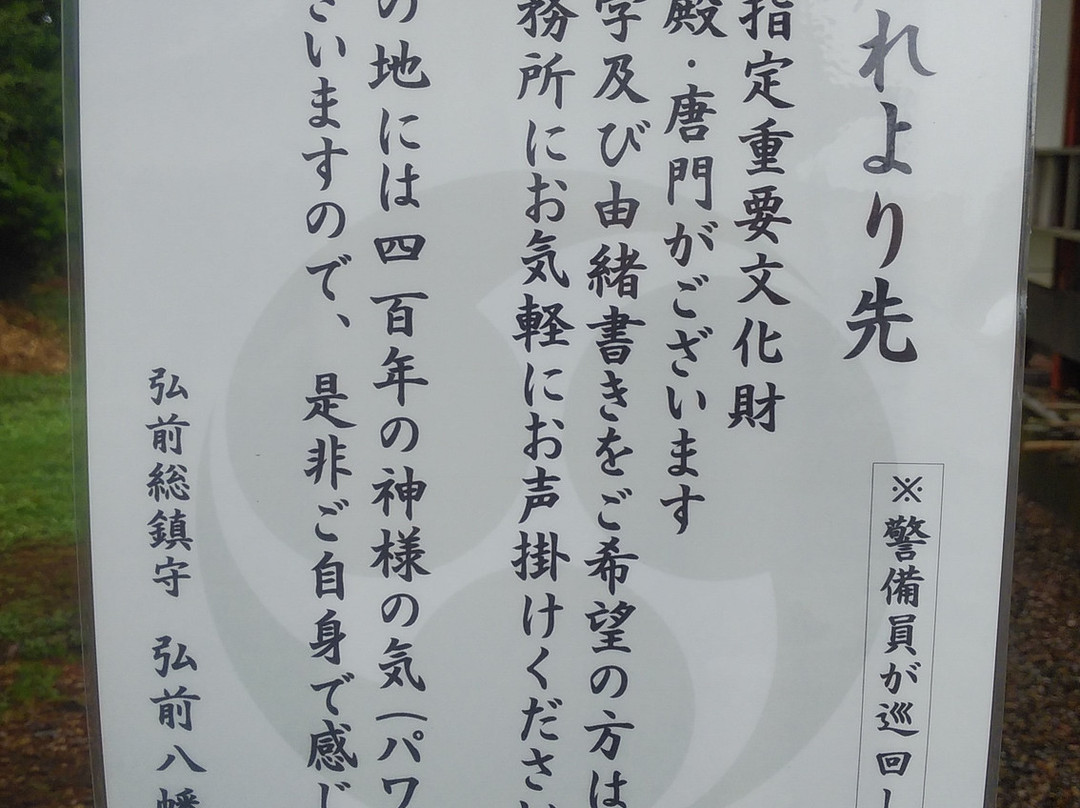 れより先
※警備員が巡回し
指定重要文化財
殿・唐門がございます
字及び由緒書きをご希望の方は
務所にお気軽にお声掛けくださ
の地には四百年の神様の気(パワ
さいますので、是非ご自身で感じ
弘前総鎮守 弘前八幡